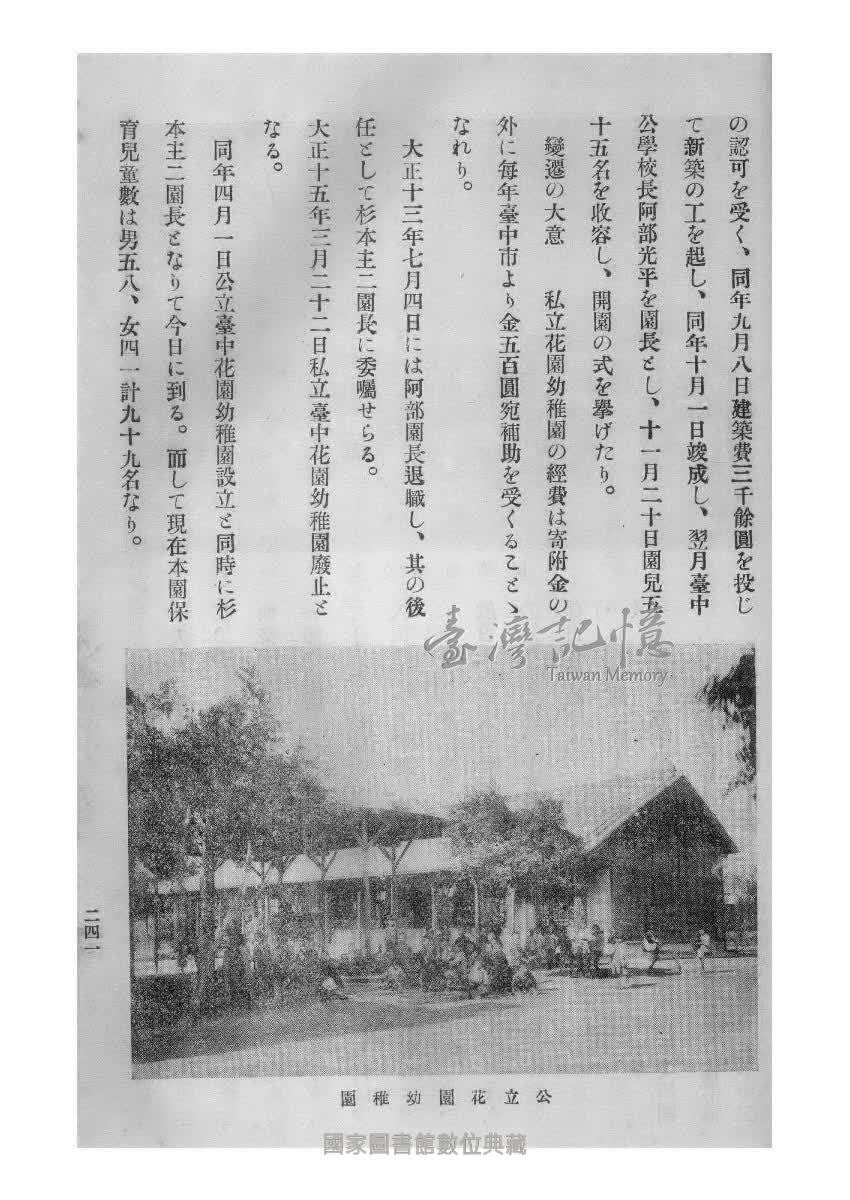 の認可を受く、同年九月八日建築費三千餘圓を投じ
て新築の工を起し、同年十月一日竣成し、翌月臺中
公學校長阿部光平を園長とし、十一月二十日園兒五
十五名を收容し、開園の式を擧げたり。
變遷の大意　私立花園幼稚園の經費は寄附金の
外に每年臺中市より金五百圓宛補助を受くることゝ
なれり。
大正十三年七月四日には阿部園長退職し、其の後
任として杉本主二園長に委囑せらる。
大正十五年三月二十二日私立臺中花園幼稚園廢止と
なる。
同年四月一日公立臺中花園幼稚園設立と同時に杉
本主二園長となりて今日に到る。而して現在本園保
育兒童數は男五八、女四一計九十九名なり。
臺灣記憶
Taiwan Memory
公立花園幼稚園
二四一
國家圖書館數位典藏